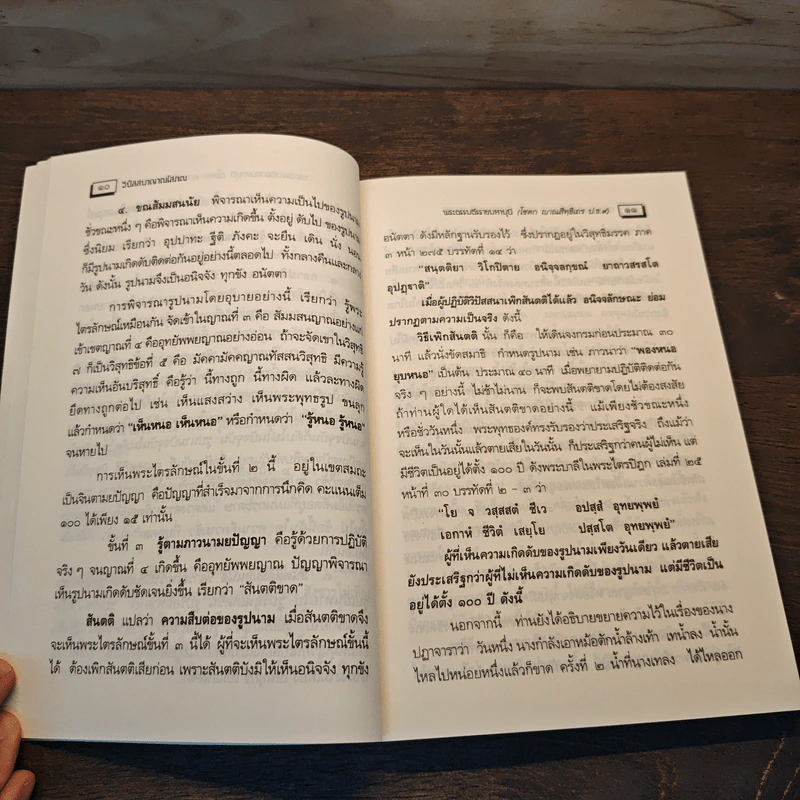 ๑๐ วิปัสสนาญาณโสภณ
๔. ขณสัมมสนนัย พิจารณาเห็นความเป็นไปของรูปนาม
ชั่วขณะหนึ่ง ๆ คือพิจารณาเห็นความเกิดขึ้น ตั้งอยู่ ดับไป ของรูปนาม
ซึ่งนิยม เรียกว่า อุปปาทะ ฐีติ ภังคะ จะยืน เดิน นั่ง นอน
ก็มีรูปนามเกิดดับติดต่อกันอยู่อย่างนี้ตลอดไป ทั้งกลางคืนและกลาง
วัน ดังนั้น รูปนามจึงเป็นอนิจจัง ทุกขัง อนัตตา
การพิจารณารูปนามโดยอุบายอย่างนี้ เรียกว่า รู้พระ
ไตรลักษณ์เหมือนกัน จัดเข้าในญาณที่ ๓ คือ สัมมสนญาณอย่างแก่
เข้าเขตญาณที่ ๔ คืออุทยัพพยญาณอย่างอ่อน ถ้าจะจัดเข้าในวิสุทธิ
๗ ก็เป็นวิสุทธิข้อที่ ๕ คือ มัคคามัคคญาณทัสสนวิสุทธิ มีความรู้
ความเห็นอันบริสุทธิ์ คือรู้ว่า นี้ทางถูก นี้ทางผิด แล้วละทางผิด
ยึดทางถูกต่อไป เช่น เห็นแสงสว่าง เห็นพระพุทธรูป ขนลุก
แล้วกำหนดว่า “เห็นหนอ เห็นหนอ” หรือกำหนดว่า “รู้หนอ รู้หนอ”
จนหายไป
การเห็นพระไตรลักษณ์ในขั้นที่ ๒ นี้ อยู่ในเขตสมถะ
เป็นจินตามยปัญญา คือปัญญาที่สำเร็จมาจากการนึกคิด คะแนนเต็ม
๑๐๐ ได้เพียง ๑๕ เท่านั้น
ขั้นที่ ๓ รู้ตามภาวนามยปัญญา คือรู้ด้วยการปฏิบัติ
จริง ๆ จนญาณที่ ๔ เกิดขึ้น คืออุทยัพพยญาณ ปัญญาพิจารณา
เห็นรูปนามเกิดดับชัดเจนยิ่งขึ้น เรียกว่า “สันตติขาด”
สันตติ แปลว่า ความสืบต่อของรูปนาม เมื่อสันตติขาดจึง
จะเห็นพระไตรลักษณ์ขั้นที่ ๓ นี้ได้ ผู้ที่จะเห็นพระไตรลักษณ์ขั้นนี้
ได้ ต้องเพิกสันตติเสียก่อน เพราะสันตติบังมิให้เห็นอนิจจัง ทุกขัง
พระธรรมธีรราชมหามุนี (โชดก ญาณสิทฺธิเถร ป.ธ.๙) ๑๑
อนัตตา ดังมีหลักฐานรับรองไว้ ซึ่งปรากฏอยู่ในวิสุทธิมรรค ภาค
๓ หน้า ๒๗๕ บรรทัดที่ ๑๔ ว่า
“สนฺตติยา วิโกปิตาย อนิจฺจลกฺขณํ ยาถาวสรสโต
อุปฏฺฐาติ”
เมื่อผู้ปฏิบัติวิปัสสนาเพิกสันตติได้แล้ว อนิจจลักษณะ ย่อม
ปรากฏตามความเป็นจริง ดังนี้
วิธีเพิกสันตติ นั้น ก็คือ ให้เดินจงกรมก่อนประมาณ ๓๐
นาที แล้วนั่งขัดสมาธิ กำหนดรูปนาม เช่น ภาวนาว่า “พองหนอ
ยุบหนอ” เป็นต้น ประมาณ ๔๐ นาที เมื่อพยายามปฏิบัติติดต่อกัน
จริง ๆ อย่างนี้ ไม่ช้าไม่นาน ก็จะพบสันตติขาดโดยไม่ต้องสงสัย
ถ้าท่านผู้ใดได้เห็นสันตติขาดอย่างนี้ แม้เพียงชั่วขณะหนึ่ง
หรือชั่ววันหนึ่ง พระพุทธองค์ทรงรับรองว่าประเสริฐจริง ถึงแม้ว่า
จะเห็นในวันนั้นแล้วตายเสียในวันนั้น ก็ประเสริฐกว่าคนผู้ไม่เห็น แต่
มีชีวิตเป็นอยู่ได้ตั้ง ๑๐๐ ปี ดังพระบาลีในพระไตรปิฎก เล่มที่ ๒๕
หน้าที่ ๓๐ บรรทัดที่ ๒ - ๓ ว่า
“โย จ วสฺสสตํ ชีเว อปสฺสํ อุทยพฺพยํ
เอกาหํ ชีวิตํ เสยฺโย ปสฺสโต อุทยพฺพยํ”
ผู้ที่เห็นความเกิดดับของรูปนามเพียงวันเดียว แล้วตายเสีย
ยังประเสริฐกว่าผู้ที่ไม่เห็นความเกิดดับของรูปนาม แต่มีชีวิตเป็น
อยู่ได้ตั้ง ๑๐๐ ปี ดังนี้
นอกจากนี้ ท่านยังได้อธิบายขยายความไว้ในเรื่องของนาง
ปฏาจาราว่า วันหนึ่ง นางกำลังเอาหม้อตักน้ำล้างเท้า เทน้ำลง น้ำนั้น
ไหลไปหน่อยหนึ่งแล้วก็ขาด ครั้งที่ ๒ น้ำที่นางเทลง ได้ไหลออก